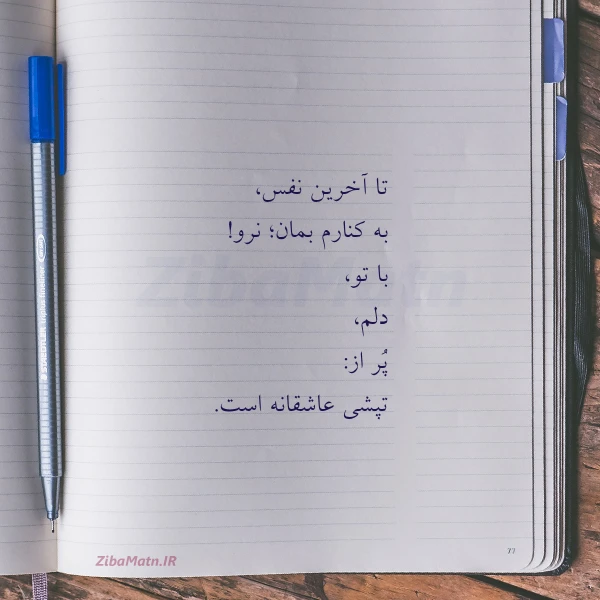 تا آخرین نفس،
به کنارم بمان؛ نرو!
با تو،
دلم،
پُر از:
تپشی عاشقانه است.
ZibaMatn
ZibaMatn.IR
77